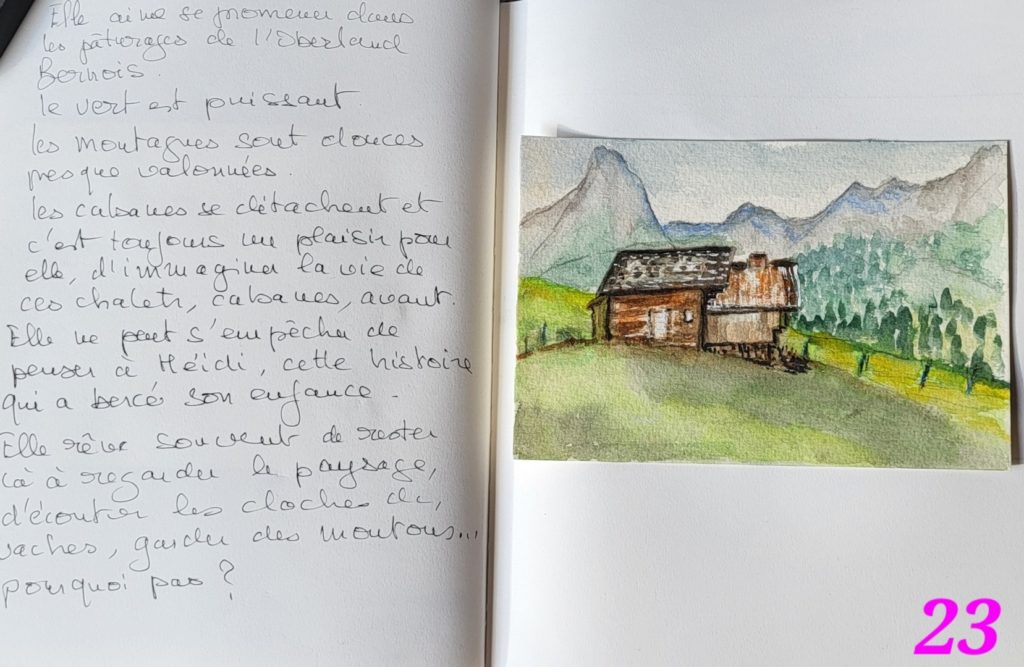 Elle aime se promener dans
les pâturages de l'Oberland
Bernois.
le vert est puissant.
les montagnes sont douces
presque valonnées.
les cabanes se détachent et
c'est toujours un plaisir pour
elle, d'immaginer la vie de
ces chalets, cabanes, avant.
Elle ne peut s'empêcher de
penser à Héidi, cette histoire
qui a bercé son enfance.
Elle rêve souvent de rester
là à regarder le paysage,
d'écouter les cloches des
vaches, garder des moutons...
pourquoi pas ?
23